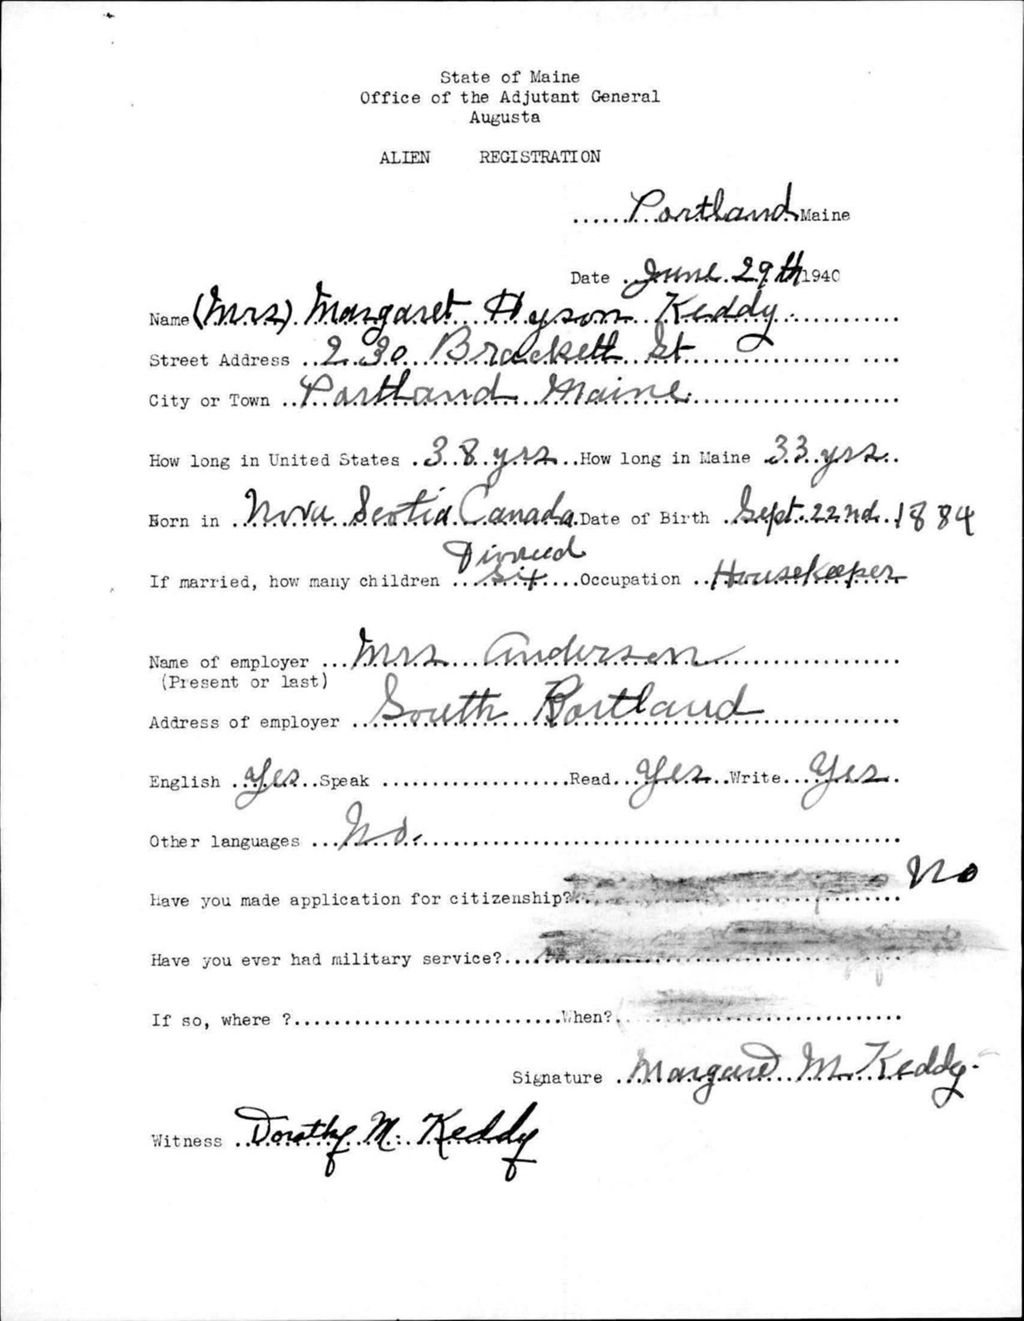 State of Maine
Office of the Adjutant General
Augusta
ALIEN REGISTRATION
......Portland Maine
Date .June 29th 1940
Name (Mrs) Margaret Hyson Keddy
Street Address ..230 Brackett St
City or Town ..Portland Maine
How long in United States .38 yrs...How long in Maine .33 yrs..
Born in ..Nova Scotia Canada.Date of Birth .Sept. 22nd. 1884
Divorced
If married, how many children ...six....Occupation ..Housekeeper
Name of employer ...Mrs Anderson
(Present or last)
Address of employer ..South Portland
English .Yes...Speak ...................Read...Yes..Write...Yes.
Other languages ...No.
Have you made application for citizenship?... No
Have you ever had military service?...
If so, where ?...........................When?.
Signature ..Margaret M. Keddy.
Witness ..Dorothy M. Keddy